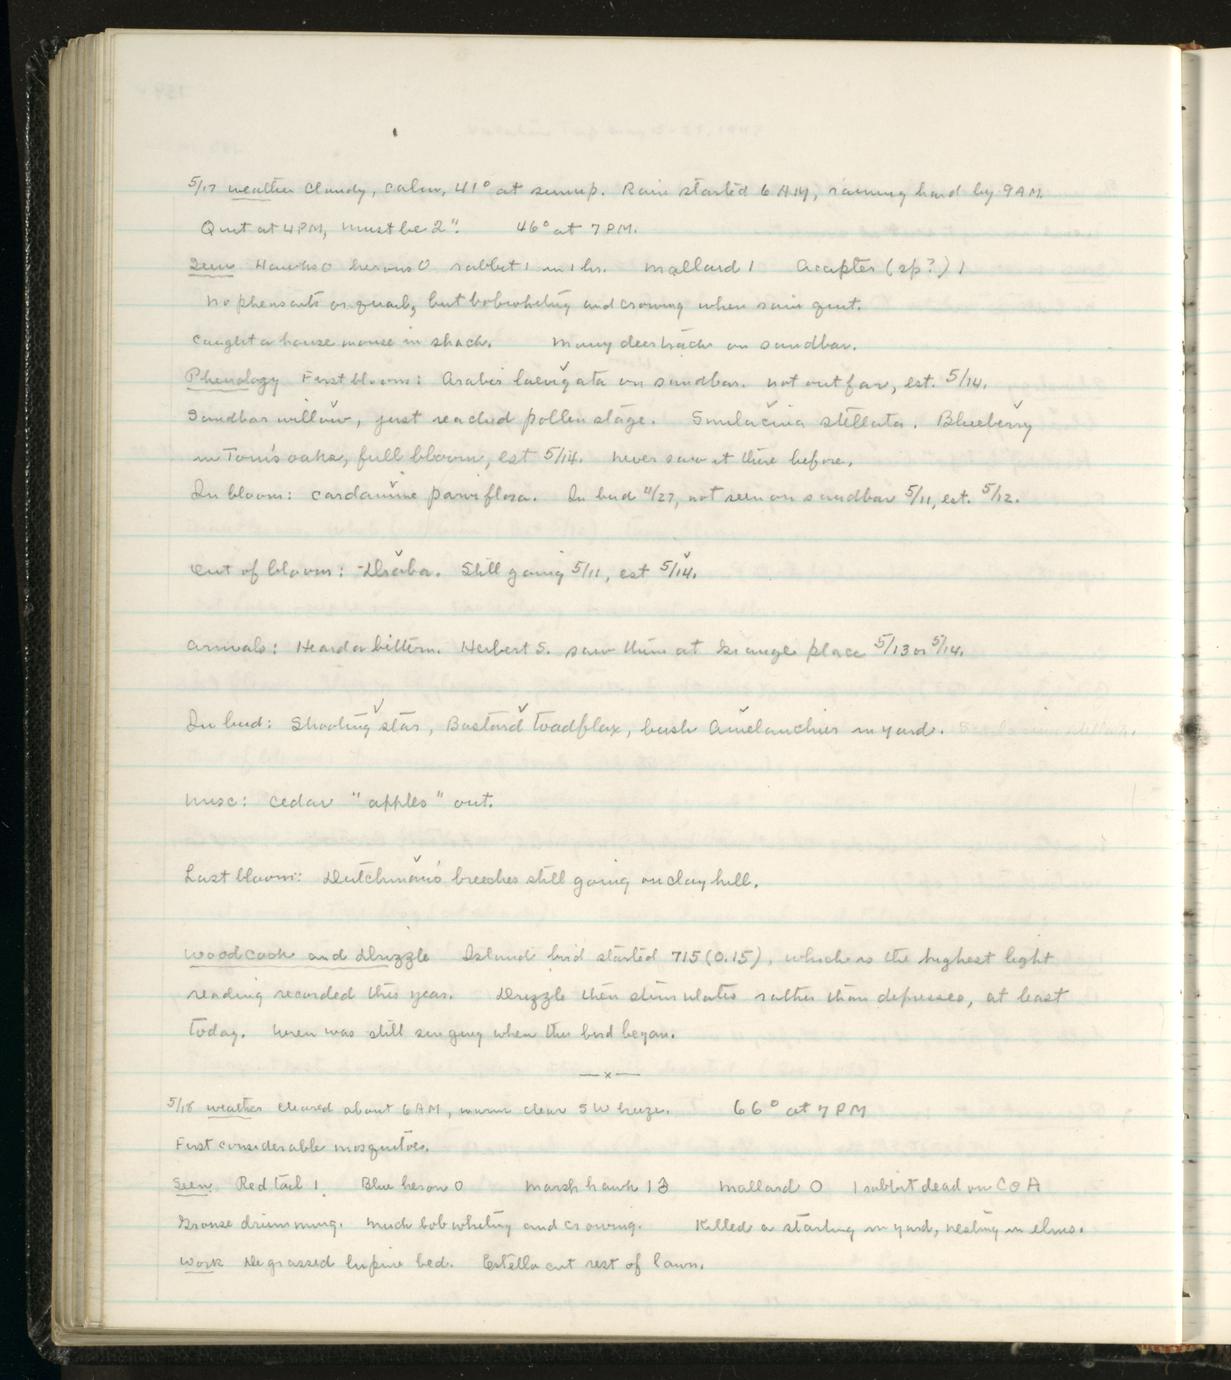 5/17 weather Cloudy, calm, 41° at sunup. Rain started 6 AM, raining hard by 9 AM.
Quit at 4 PM, must be 2". 46° at 7 PM.
Seen Hawks 0 herons 0 rabbit 1 in 1 hr. Mallard 1 Accipter (sp?) 1
No pheasants or quail, but bobwhiting and crowing when rain quit.
Caught a house mouse in shack. Many deer tracks on sandbar.
Phenology First bloom: Arabis laevigata on sandbar. Not out far, est. 5/14.
Sandbar willow, just reached pollen stage. Smilacina stellata. Blueberry
in Tom's oaks, full bloom, est 5/14. Never saw it there before.
In bloom: Cardamine parviflora. In bud 4/27, not seen on sandbar 5/11, est. 5/12.
Out of bloom: Draba. Still going 5/11, est 5/14.
Arrivals: Heard a bittern. Herbert S. saw them at Grange place 5/13 or 5/14.
In bud: Shooting star, Bastard toadflax, bush Amelanchier in yard.
Misc: Cedar "apples" out.
Last bloom: Dutchman's breeches still going on clay hill.
Woodcock and Drizzle Island bird started 715 (0.15), which is the highest light
reading recorded this year. Drizzle then stimulates rather than depresses, at least
today. Wren was still singing when this bird began.
—x—
5/18 weather Cleared about 6 AM, warm clear SW breeze. 66° at 7 PM
First considerable mosquitoes.
Seen Red tail 1 Blue heron 0 Marsh hawk 1♂ Mallard 0 1 rabbit dead on Co A
Grouse drumming. Much bobwhiting and crowing. Killed a starling in yard, nesting in elms.
Work Degrassed lupine bed. Estella cut rest of lawn.